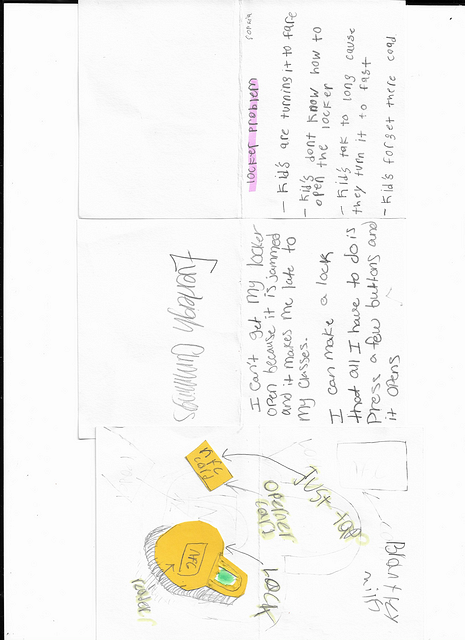 Sophia
locker problem
- Kid's are turning it to fare
- Kid's dont know how to
open the locker
- Kid's tak to long cause
they turn it to fast
- Kid's forget there coad
I can't get my locker
open because it is jammed
and it makes me late to
my classes.
I can make a lock
that all I have to do is
Press a few buttons and
it opens
Cummings
NFC
card
JUST TAP
opener
card
NFC
LOCK